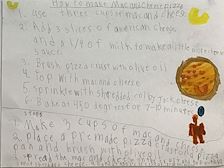 How to make Mac and cheese pizza
1. Use three cups of macaroni cheese
2. Add 3 slices of american cheese
and a 1/4 of milk to make little more cheese
sauce
3. Brush pizza crust with olive oil
4. Top with mac and cheese
5. sprinkle with shredded colby jack cheese
6. Bake at 450 degrees for 7-10 minutes
1. Make 3 cups of mac and cheese
2. place a premade pizza
pan and brush with
3. spread the mac and cheese